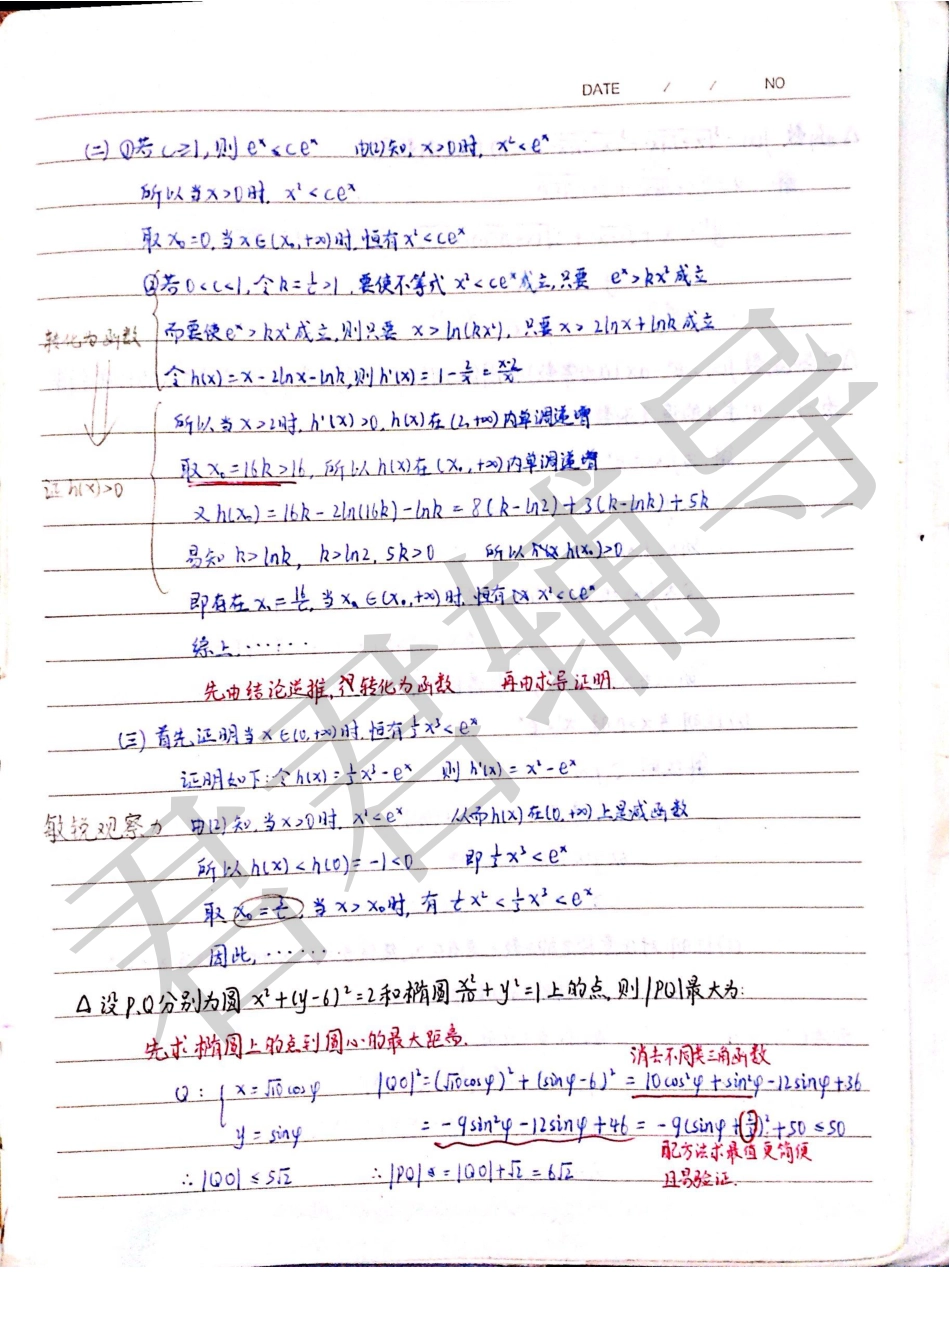 DATE / / NO
(二) ①若c≥1,则eˣ≤ceˣ 由(2)知,x>0时,x²<eˣ
所以当x>0时,x²<ceˣ
取x₀=0,当x∈(x₀,+∞)时,恒有x²<ceˣ
②若0<c<1,令k=1/c>1,要使不等式x²<ceˣ成立,只要 eˣ>kx²成立
转化为函数
而要使eˣ>kx²成立,则只要 x>ln(kx²),只要x>2lnx+lnk成立
令h(x)=x-2lnx-lnk,则h'(x)=1-2/x=(x-2)/x
所以当x>2时,h'(x)>0,h(x)在(2,+∞)内单调递增
证h(x)>0
取x₀=16k>16,所以h(x)在(x₀,+∞)内单调递增
又h(x₀)=16k-2ln(16k)-lnk=8(k-ln2)+3(k-lnk)+5k
易知k>lnk,k>ln2,5k>0 所以h(x₀)>0
即存在x₀=16/c,当x∈(x₀,+∞)时,恒有x²<ceˣ
综上,······
先由结论逆推,转化为函数 再由求导证明.
(三) 首先证明当x∈(0,+∞)时,恒有1/3x³<eˣ
证明如下:令h(x)=1/3x³-eˣ 则h'(x)=x²-eˣ
敏锐观察力
由(2)知,当x>0时,x²<eˣ 从而h(x)在(0,+∞)上是减函数
所以h(x)<h(0)=-1<0 即1/3x³<eˣ
取x₀=3/c,当x>x₀时,有1/cx²<1/3x³<eˣ
因此,······
△设P,Q分别为圆x²+(y-6)²=2和椭圆x²/10+y²=1上的点,则|PQ|最大为:
先求椭圆上的点到圆心的最大距离.
消去不同类三角函数
Q:{x=√10cosφ |QO|²=(√10cosφ)²+(sinφ-6)²=10cos²φ+sin²φ-12sinφ+36
y=sinφ =-9sin²φ-12sinφ+46=-9(sinφ+2/3)²+50≤50
配方法求最值更简便
∴|QO|≤5√2 ∴|PQ|≤=|QO|+√2=6√2
且易验证.
君君辅导